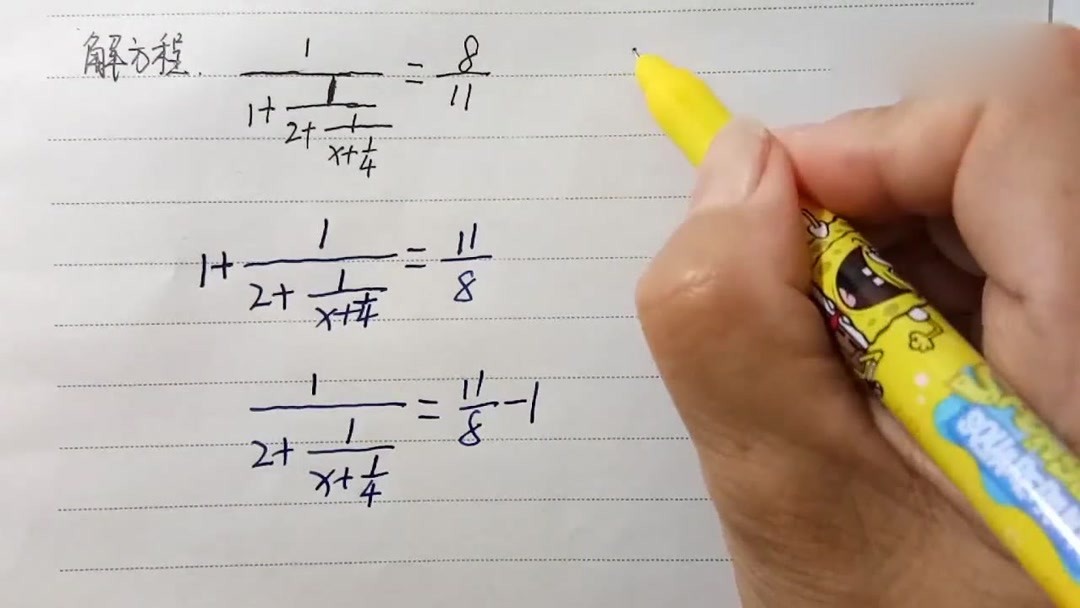 解方程. 1/(1+1/(2+1/(x+1/4))) = 8/11
1+1/(2+1/(x+1/4)) = 11/8
1/(2+1/(x+1/4)) = 11/8-1